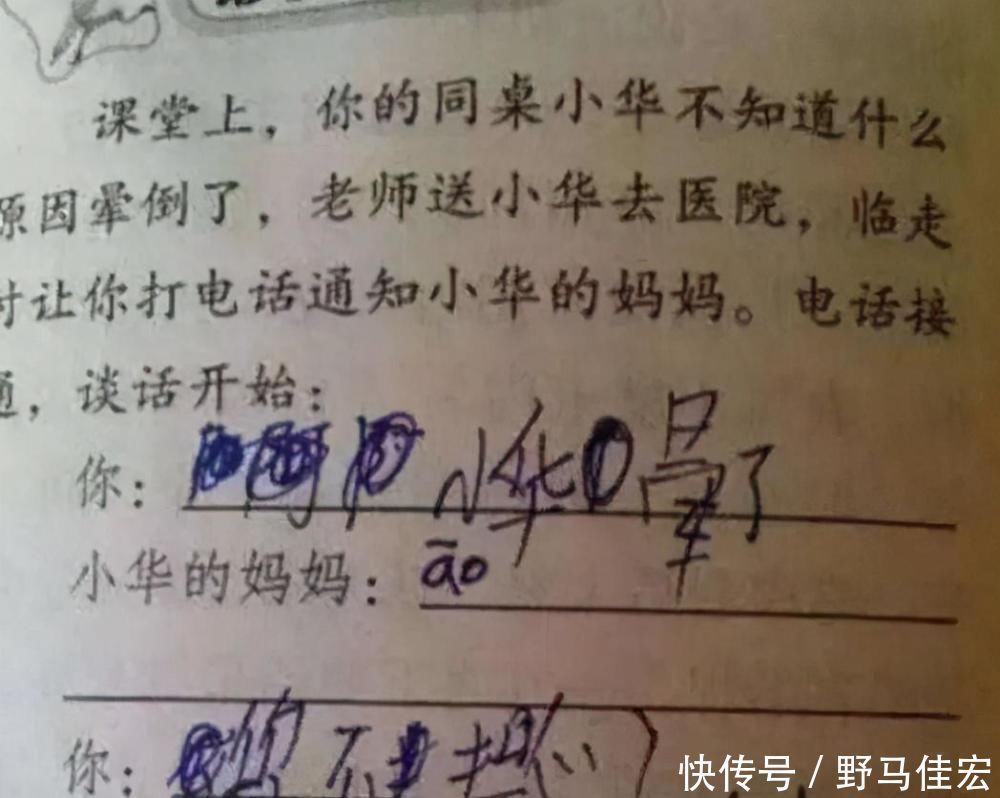 课堂上，你的同桌小华不知道什么
原因晕倒了，老师送小华去医院，临走
时让你打电话通知小华的妈妈。电话接
通，谈话开始：
你： 小华晕了
小华的妈妈： āo
你： 你不
快传号 / 野马佳宏